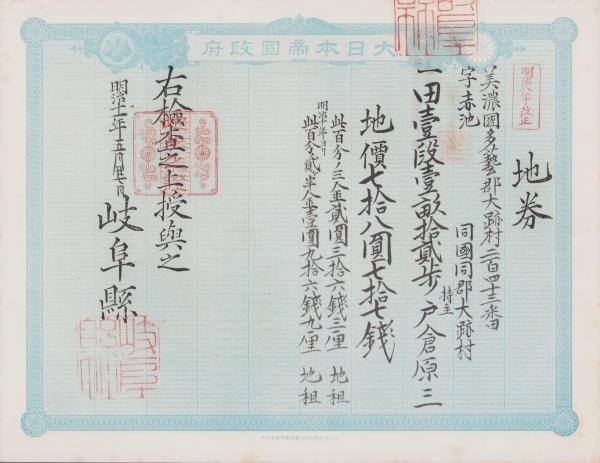 大日本帝國政府
明治八年改正
地券
美濃國多藝郡大跡村二百四十三番田
字赤池
同國同郡大跡村
一田壹段壹畝拾貳歩
持主
戸倉原三
地價七拾八圓七拾七錢
此百分ノ三金貳圓三拾六錢三厘 地租
明治十年ヨリ
此百分ノ貳半金壹圓九拾六錢九厘 地租
右檢査之上授與之
明治十一年五月
岐阜縣